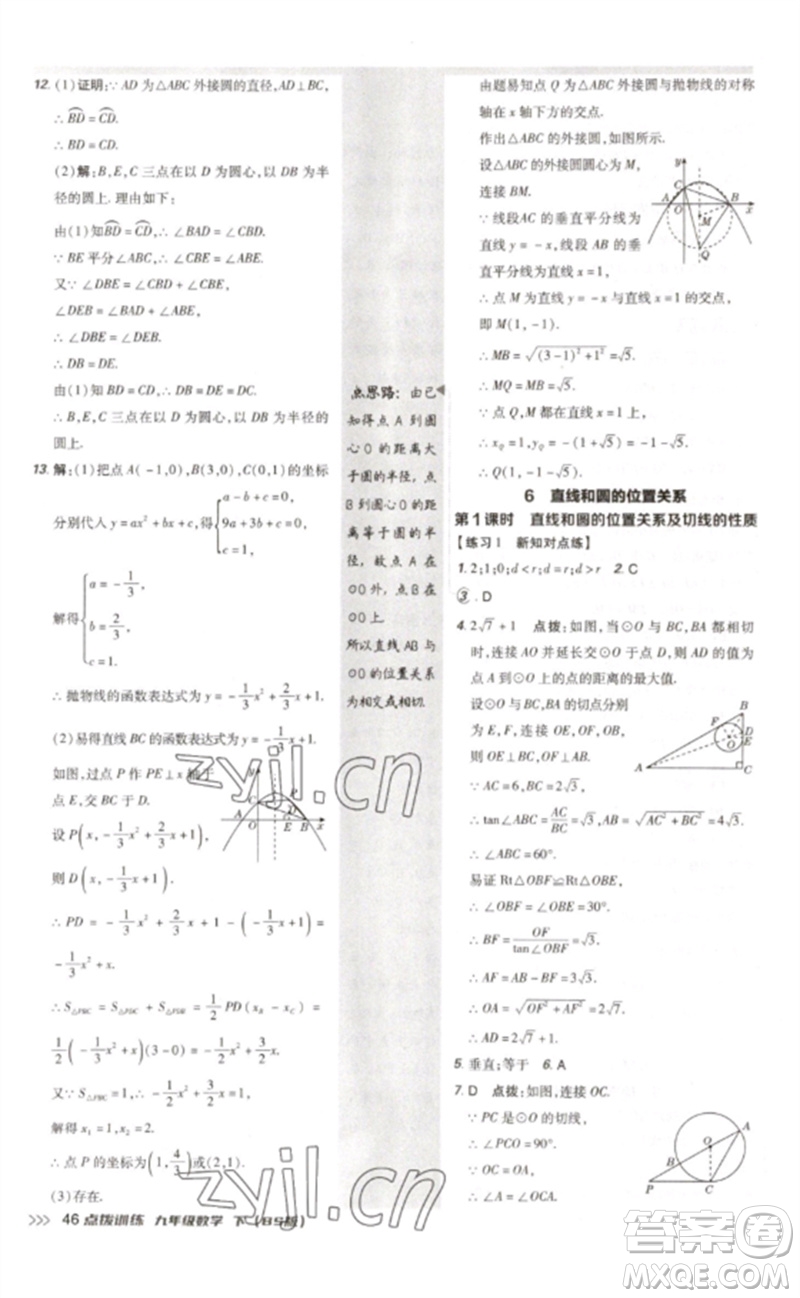 12. (1)证明:∵ AD 为△ABC 外接圆的直径,AD⊥BC,
∴ BD⌒ = CD⌒.
∴ BD = CD.
(2)解:B,E,C 三点在以 D 为圆心,以 DB 为半
径的圆上. 理由如下:
由(1)知BD⌒ = CD⌒,∴ ∠BAD = ∠CBD.
∵ BE 平分∠ABC,∴ ∠CBE = ∠ABE.
又∵ ∠DBE = ∠CBD + ∠CBE,
∠DEB = ∠BAD + ∠ABE,
∴ ∠DBE = ∠DEB.
∴ DB = DE.
由(1)知 BD = CD,∴ DB = DE = DC.
∴ B,E,C 三点在以 D 为圆心,以 DB 为半径的
圆上.
13. 解:(1)把点 A( -1,0),B(3,0),C(0,1)的坐标
分别代入 y = ax² + bx + c,得 { a - b + c = 0,
9a + 3b + c = 0,
c = 1.
解得 { a = -1/3,
b = 2/3,
c = 1.
∴ 抛物线的函数表达式为 y = -1/3x² + 2/3x + 1.
(2)易得直线 BC 的函数表达式为 y = -1/3x + 1.
如图,过点 P 作 PE⊥x 轴于
点 E,交 BC 于 D.
C P D
A O E B x
设 P(x, -1/3x² + 2/3x + 1),
则 D(x, -1/3x + 1).
∴ PD = -1/3x² + 2/3x + 1 - (-1/3x + 1) =
-1/3x² + x.
∴ S△PBC = S△PDC + S△PDB = 1/2PD(x_B - x_C) =
1/2(-1/3x² + x)(3 - 0) = -1/2x² + 3/2x.
又∵ S△PBC = 1,∴ -1/2x² + 3/2x = 1.
解得 x₁ = 1, x₂ = 2.
∴ 点 P 的坐标为(1, 4/3)或(2,1).
(3)存在.
点思路: 由已
知得点 A 到圆
心 O 的距离大
于圆的半径,点
B 到圆心 O 的距
离等于圆的半
径,故点 A 在
⊙O 外,点 B 在
⊙O 上.
所以直线 AB 与
⊙O 的位置关系
为相交或相切.
由题易知点 Q 为△ABC 的外接圆与抛物线的对称
轴在 x 轴下方的交点.
作出△ABC 的外接圆如图所示.
设△ABC 的外接圆圆心为 M,
连接 BM.
∵ 线段AC 的垂直平分线为
直线 y = -x,线段 AB 的垂
直平分线为直线 x = 1,
∴ 点 M 为直线 y = -x 与直线 x = 1 的交点,
即 M(1, -1).
y C A O B x M Q
∴ MB = √((3-1)² + 1²) = √5.
∴ MQ = MB = √5.
∵ 点 Q 在直线 x = 1 上,
∴ y_Q = -1 - √5.
∴ Q(1, -1 - √5).
6 直线和圆的位置关系
第 1 课时 直线和圆的位置关系及切线的性质
【练习 1 新知对点练】
1. 2;1;0;d < r;d = r;d > r 2. C
3. D
4. 2√7 + 1 点拨:如图,当⊙O 与 BC,BA 都相切
时,连接 AO 并延长交⊙O 于点 D,则 AD 的值为
点 A 到⊙O 上的点的距离的最大值.
设⊙O 与 BC,BA 的切点分别
为 E,F,连接 OE,OF,OB,
则 OE⊥BC,OF⊥AB.
B F D O E A C
∵ AC = 6,BC = 2√3,
∴ tan∠ABC = AC/BC = √3,AB = √(AC² + BC²) = 4√3.
∴ ∠ABC = 60°.
易证 Rt△OBF≌Rt△OBE.
∴ ∠OBF = ∠OBE = 30°.
∴ BF = OF/tan∠OBF = √3.
∴ AF = AB - BF = 3√3.
∴ OA = √(OF² + AF²) = 2√7.
∴ AD = 2√7 + 1.
5. 垂直;等于 6. A
7. D 点拨:如图,连接 OC.
∵ PC 是⊙O 的切线,
∴ ∠PCO = 90°.
∵ OC = OA,
A O B P C
46 点拨训练 九年级数学 下 (BS版)
zyjl.cn
zyjl.cn
答案圈
MXQE.COM